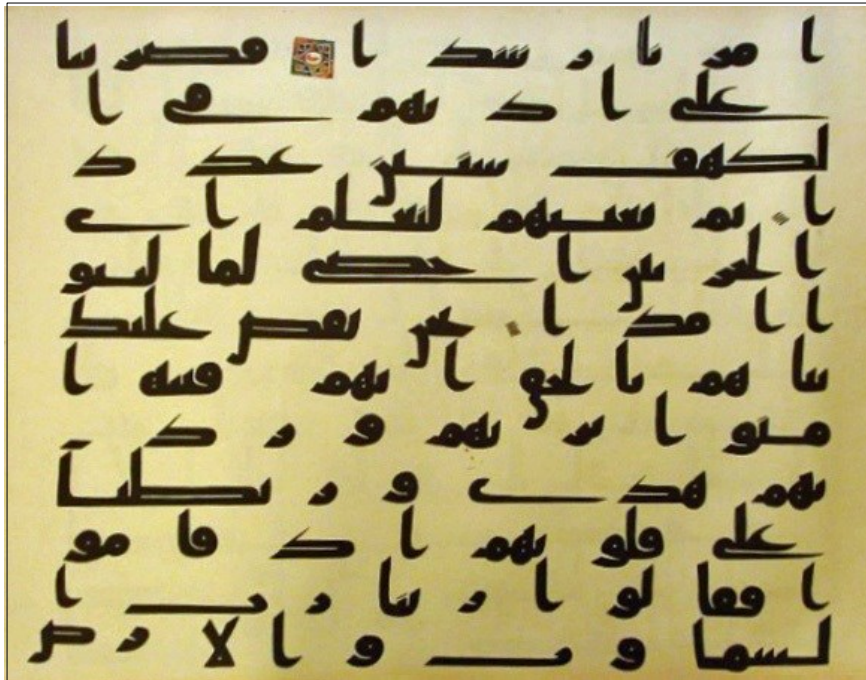 ا مر نا ر شد ا فضر بنا
على ا ذ نهم في ا
لكهف سنين عد د
ا ثم بعثنهم لنعلم ا ي
ا لحز بين ا حصى لما لبثو
ا ا مد ا نحن نقص عليك
نبا هم با لحق ا نهم فتية ا
منو ا بر بهم و ز د
نهم هدى و ر بطنا
على قلو بهم ا ذ قا مو
ا فقا لو ا ر بنا ر ب ا
لسما و ت و ا لا ر ض